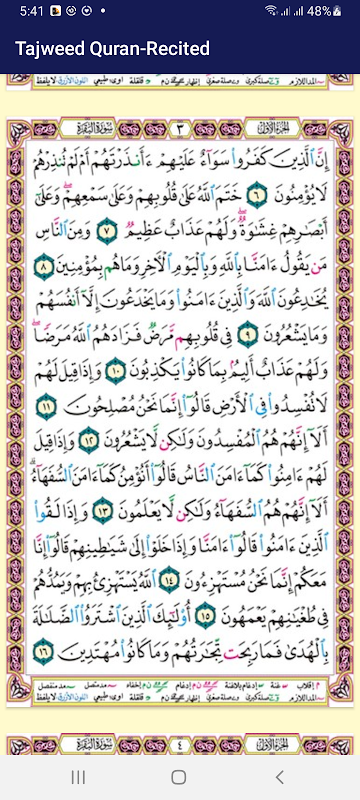 5:41
48%
Tajweed Quran-Recited
الجزء الأول ٣ سورة البقرة
إِنَّ ٱلَّذِينَ كَفَرُوا۟ سَوَآءٌ عَلَيْهِمْ ءَأَنذَرْتَهُمْ أَمْ لَمْ تُنذِرْهُمْ
لَا يُؤْمِنُونَ ٦ خَتَمَ ٱللَّهُ عَلَىٰ قُلُوبِهِمْ وَعَلَىٰ سَمْعِهِمْ ۖ وَعَلَىٰٓ
أَبْصَـٰرِهِمْ غِشَـٰوَةٌ ۖ وَلَهُمْ عَذَابٌ عَظِيمٌ ٧ وَمِنَ ٱلنَّاسِ
مَن يَقُولُ ءَامَنَّا بِٱللَّهِ وَبِٱلْيَوْمِ ٱلْـَٔاخِرِ وَمَا هُم بِمُؤْمِنِينَ ٨
يُخَـٰدِعُونَ ٱللَّهَ وَٱلَّذِينَ ءَامَنُوا۟ وَمَا يَخْدَعُونَ إِلَّآ أَنفُسَهُمْ
وَمَا يَشْعُرُونَ ٩ فِى قُلُوبِهِم مَّرَضٌ فَزَادَهُمُ ٱللَّهُ مَرَضًا ۖ
وَلَهُمْ عَذَابٌ أَلِيمٌۢ بِمَا كَانُوا۟ يَكْذِبُونَ ١٠ وَإِذَا قِيلَ لَهُمْ
لَا تُفْسِدُوا۟ فِى ٱلْأَرْضِ قَالُوٓا۟ إِنَّمَا نَحْنُ مُصْلِحُونَ ١١
أَلَآ إِنَّهُمْ هُمُ ٱلْمُفْسِدُونَ وَلَـٰكِن لَّا يَشْعُرُونَ ١٢ وَإِذَا قِيلَ
لَهُمْ ءَامِنُوا۟ كَمَآ ءَامَنَ ٱلنَّاسُ قَالُوٓا۟ أَنُؤْمِنُ كَمَآ ءَامَنَ ٱلسُّفَهَآءُ ۗ
أَلَآ إِنَّهُمْ هُمُ ٱلسُّفَهَآءُ وَلَـٰكِن لَّا يَعْلَمُونَ ١٣ وَإِذَا لَقُوا۟
ٱلَّذِينَ ءَامَنُوا۟ قَالُوٓا۟ ءَامَنَّا وَإِذَا خَلَوْا۟ إِلَىٰ شَيَـٰطِينِهِمْ قَالُوٓا۟ إِنَّا
مَعَكُمْ إِنَّمَا نَحْنُ مُسْتَهْزِءُونَ ١٤ ٱللَّهُ يَسْتَهْزِئُ بِهِمْ وَيَمُدُّهُمْ
فِى طُغْيَـٰنِهِمْ يَعْمَهُونَ ١٥ أُو۟لَـٰٓئِكَ ٱلَّذِينَ ٱشْتَرَوُا۟ ٱلضَّلَـٰلَةَ
بِٱلْهُدَىٰ فَمَا رَبِحَت تِّجَـٰرَتُهُمْ وَمَا كَانُوا۟ مُهْتَدِينَ ١٦
الجزء الأول ٤ سورة البقرة